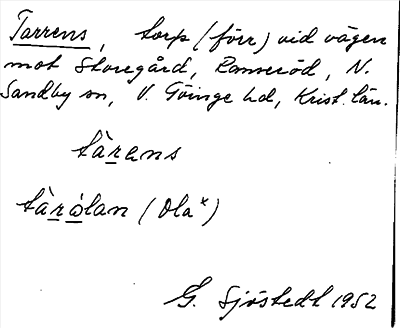 Tarrens, torp (förr) vid vägen
mot Storegård, Ramseröd, N.
Sandby sn, V. Göinge hd, Krist. län.
tàrens
tàròlan (Ola*)
G. Sjöstedt 1952